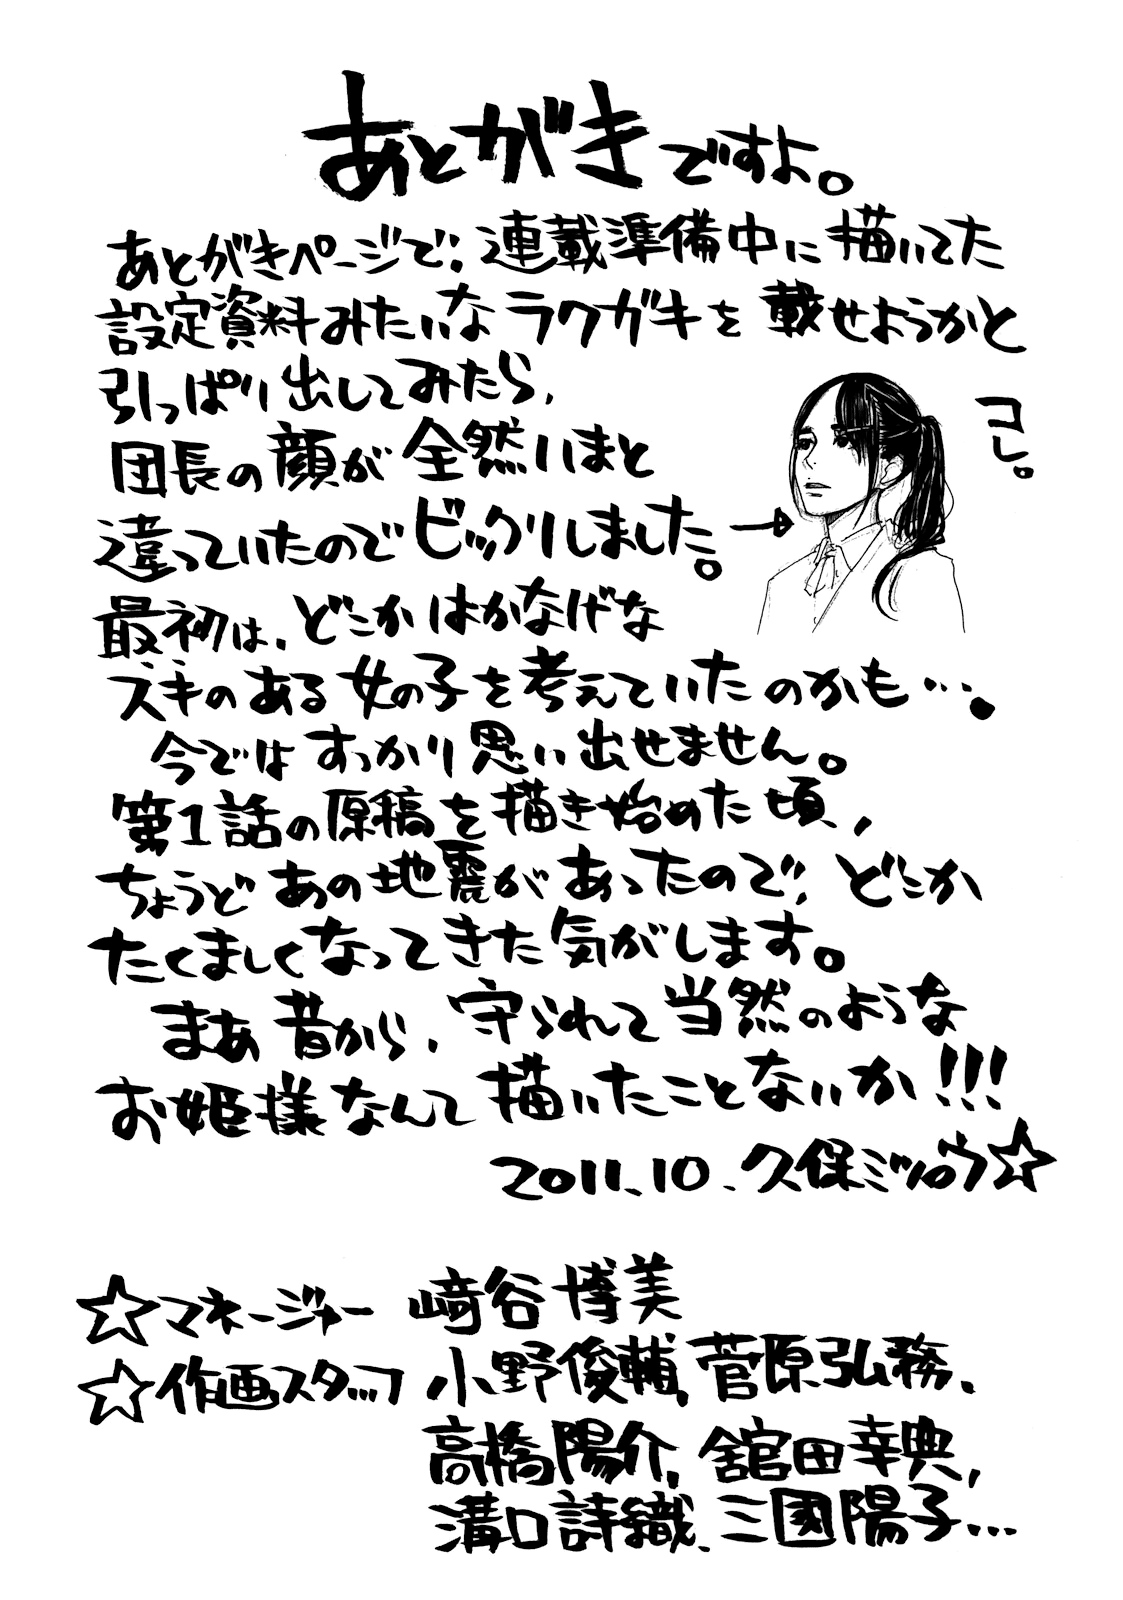 あとがきですよ。
あとがきページで、連載準備中に描いてた
設定資料みたいなラクガキを載せようかと
引っぱり出してみたら、
団長の顔が全然いまと
違っていたのでビックリしました。→
コレ。
最初は、どこかはかなげな
スキのある女の子を考えていたのかも…。
今ではすっかり思い出せません。
第1話の原稿を描き始めた頃、
ちょうどあの地震があったので、どこか
たくましくなってきた気がします。
まあ昔から、守られて当然のような
お姫様なんて描いたことないか!!!
2011.10.久保ミツロウ☆
☆マネージャー 﨑谷博美
☆作画スタッフ 小野俊輔、菅原弘務、
高橋陽介、舘田幸典、
溝口詩織、三國陽子…